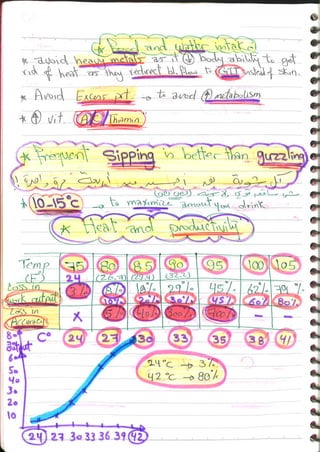 * Food and water intake
* avoid heavy metals as it ↓ body ability to get
rid of heat as they redirect bl. flow to GIT instead of skin.
* Avoid Excess prt → to avoid ↑ metabolism
* ↑ vit. A, C, Thamin
* Frequent Sipping is better than guzzling
* 10-15°c → to maximize amount you drink
* Heat and productivity
Temp (F°) 75 80 85 90 95 100 105
24 (26.7) (29.4) (32.2)
Loss in work output 3% 8% 18% 29% 45% 62% 79%
10% 20% 30% 45% 60% 80%
Loss in Accuracy X 5% 40% 300% 700% - -
C° 24 27 30 33 35 38 41
output
60
50
40
30
20
10
24°C → 3%
42°C → 80%
24 27 30 33 36 39 42